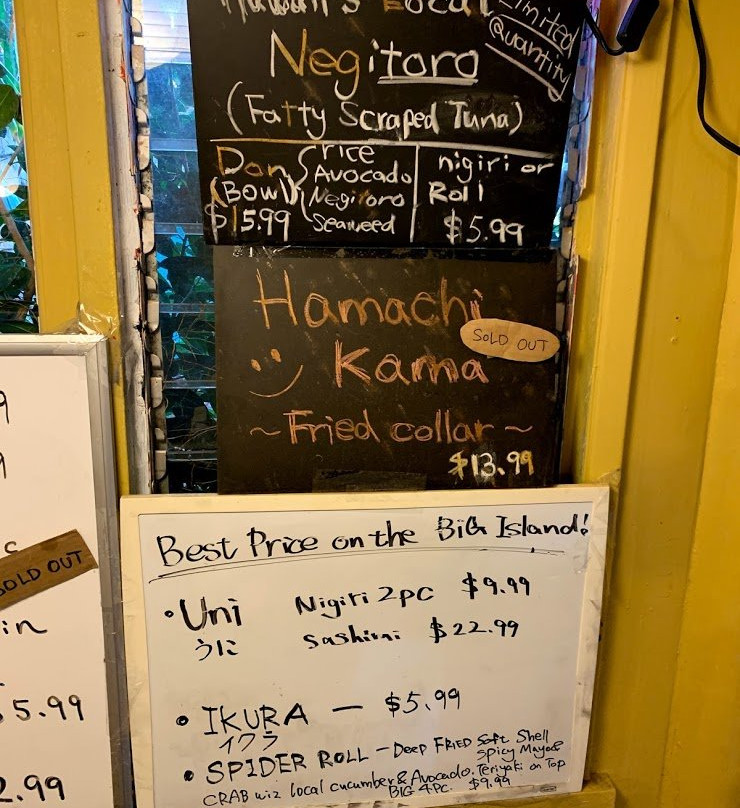 Hawaii's Local
Limited
Quantity
Negitoro
(Fatty Scraped Tuna)
Don
(Bowl)
$15.99
rice
Avocado
Negitoro
Seaweed
nigiri or
Roll
$5.99
Hamachi
Kama
SOLD OUT
~ Fried collar ~
$13.99
9
9
SOLD OUT
in
5.99
2.99
Best Price on the BiG Island!
• Uni Nigiri 2pc $9.99
うに Sashimi $22.99
• IKURA — $5.99
イクラ
• SPIDER ROLL - DEEP FRiED Soft Shell
CRAB wiz Local cucumber & Avocado. Teriyaki on Top
Spicy Mayo &
BIG 4 PC. $9.99